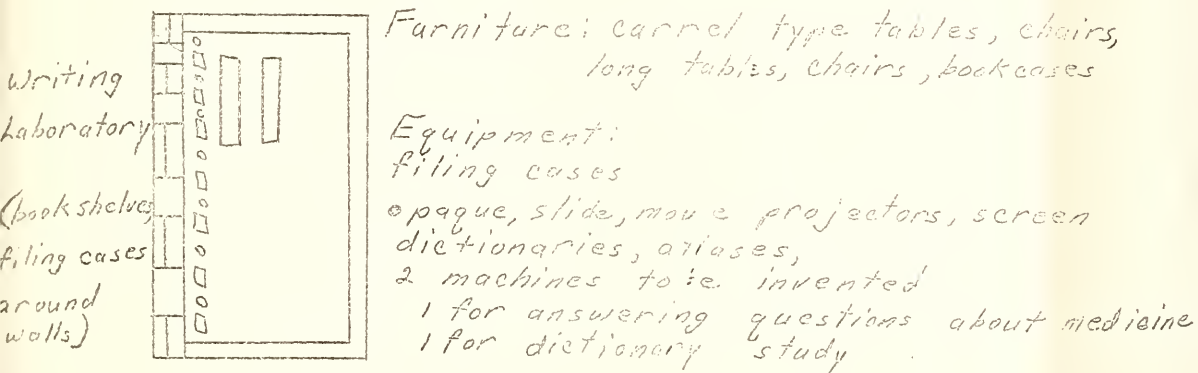 Writing
Laboratory
(bookshelves,
filing cases
around
walls)
Furniture: carrel type tables, chairs,
long tables, chairs, bookcases
Equipment:
filing cases
opaque, slide, movie projectors, screen
dictionaries, atlases,
2 machines to be invented
1 for answering questions about medicine
1 for dictionary study